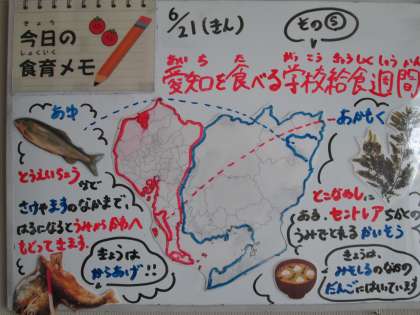 きょう
今日の
しょくいく
食育メモ
6/21(きん)
その⑤
あいち た がっこうきゅうしょくしゅうかん
愛知を食べる学校給食週間
あゆ
とうえいちょうなど
さけやますのなかまで、
はるになるとうみからかわへ
もどってきます。
きょうは
からあげ!!
あかもく
とこなめしに
ある、セントレアちかくの
うみでとれるかいそう
きょうは、
みそしるのなかの
だんごにはいっています